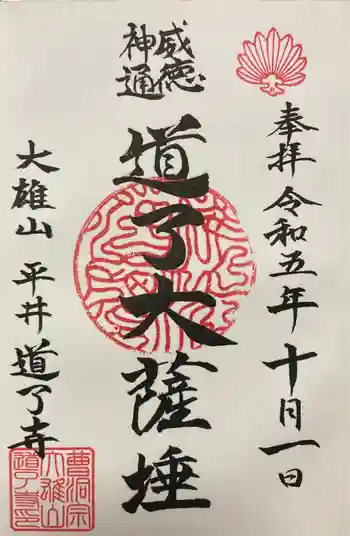 奉拝 令和五年十月一日
威徳
神通
道了大薩埵
大雄山 平井 道了寺
曹洞宗
大雄山
道了寺印